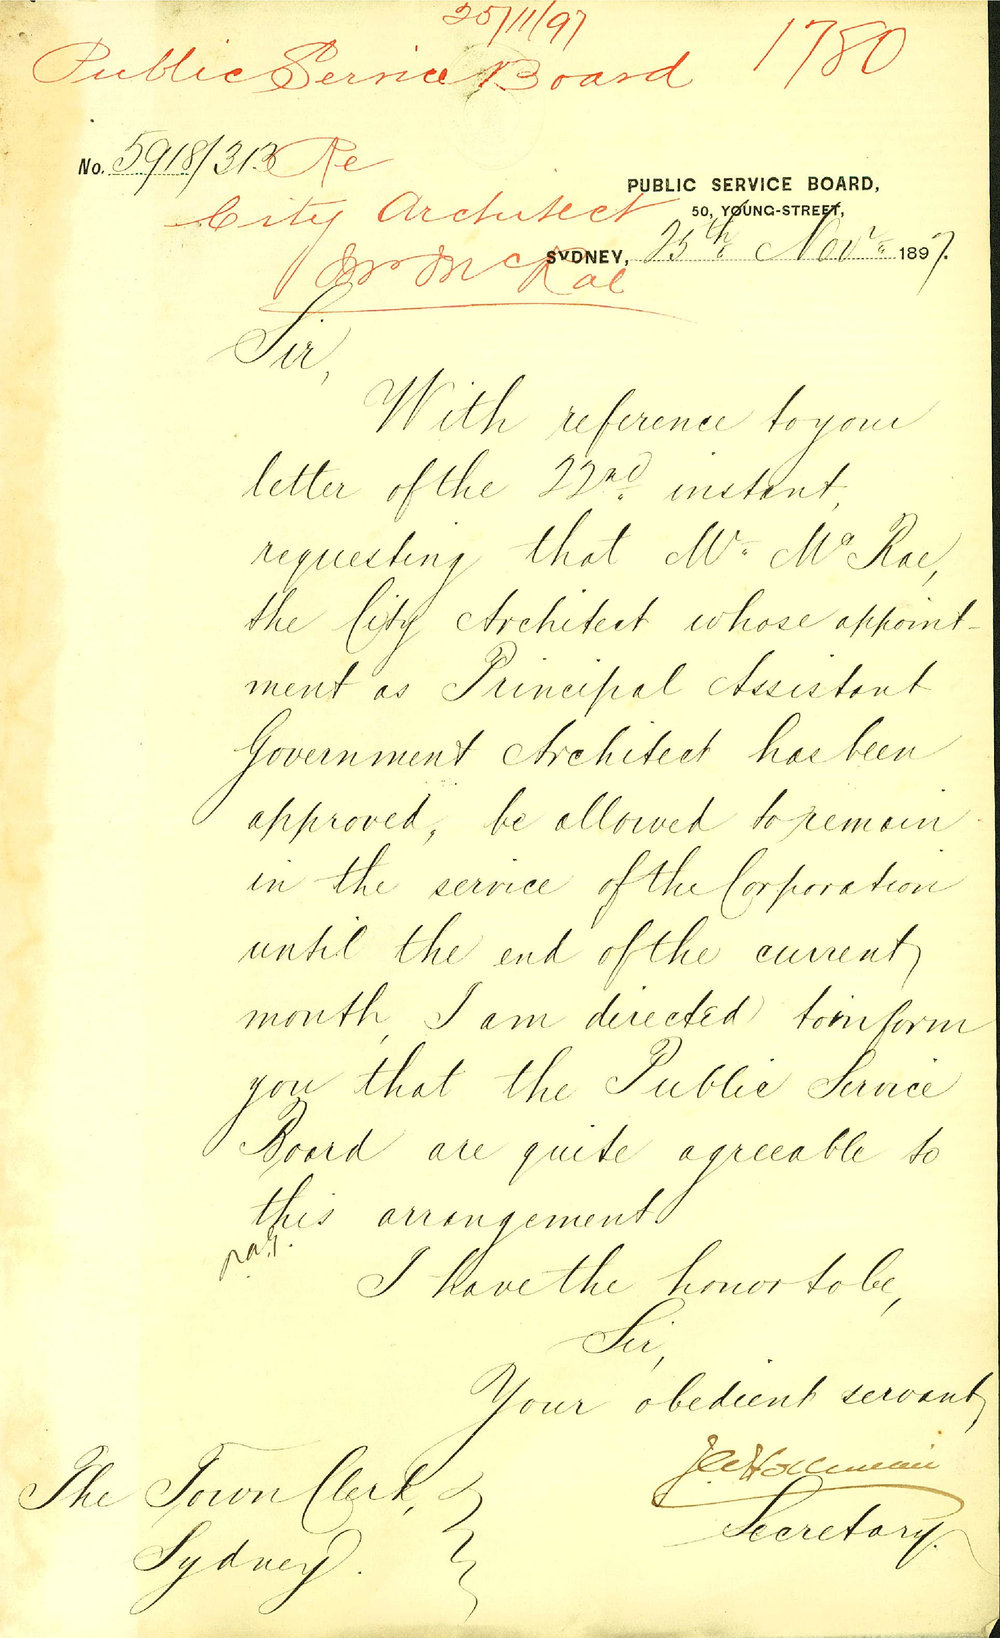 25/11/97
Public Service Board 1780
No. 5918/313 Re
PUBLIC SERVICE BOARD,
50, YOUNG-STREET,
City Architect
SYDNEY, 25th Novr. 1897.
Mr McRae
Sir,
With reference to your
letter of the 22nd instant,
requesting that Mr. McRae,
the City Architect whose appoint-
ment as Principal Assistant
Government Architect has been
approved, be allowed to remain
in the service of the Corporation
until the end of the current
month, I am directed to inform
you that the Public Service
Board are quite agreeable to
this arrangement
I have the honor to be,
Sir,
Your obedient servant,
Secretary.
The Town Clerk,
Sydney.